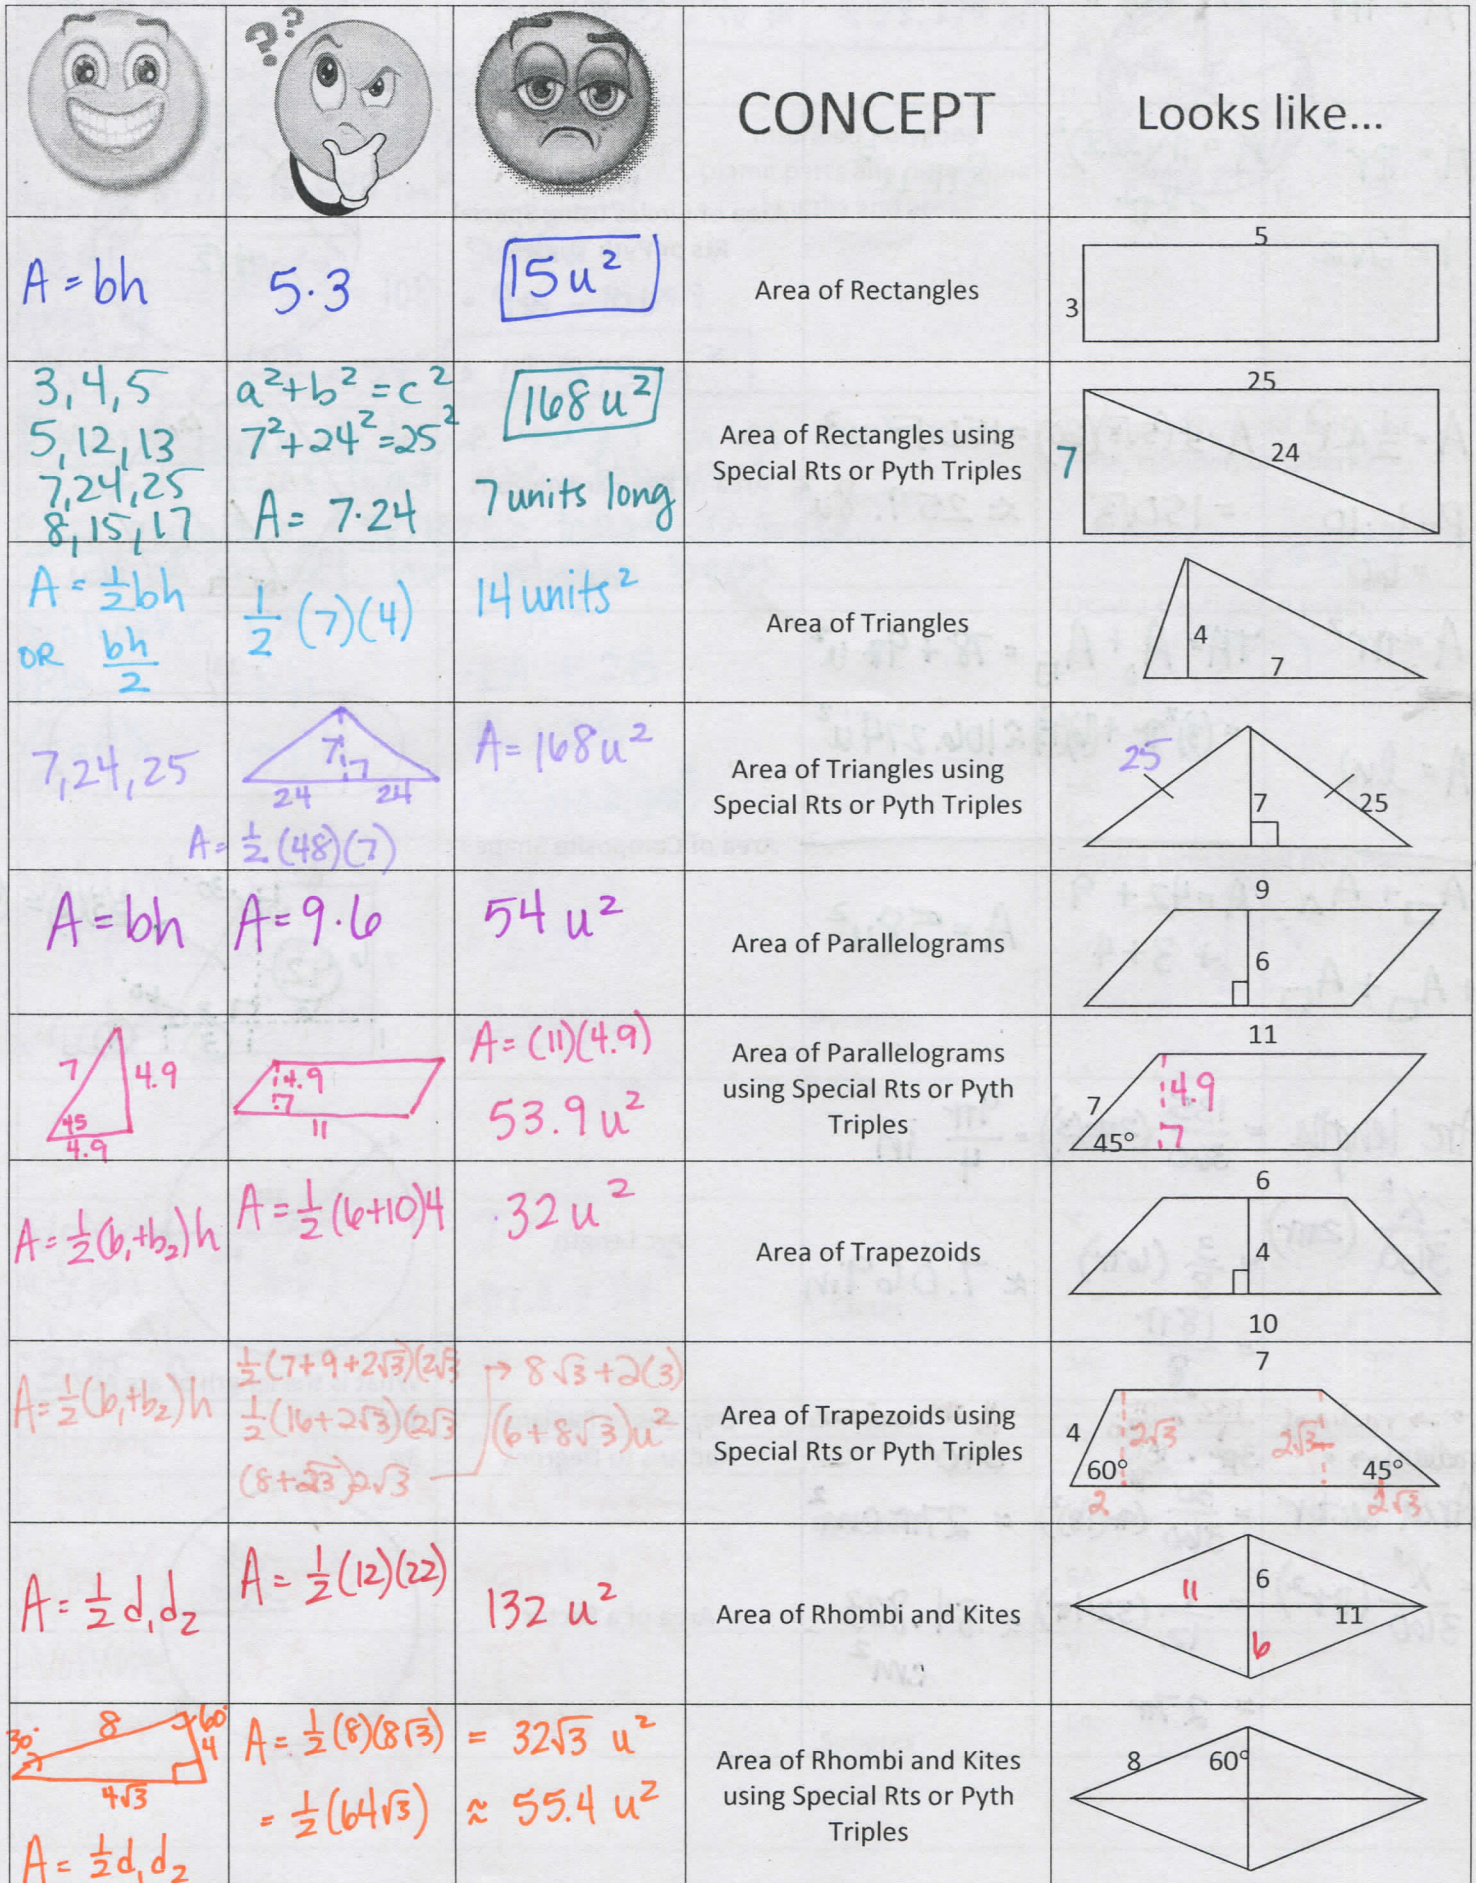 ? ? ?
CONCEPT
Looks like...
A = bh
5·3
15 u²
Area of Rectangles
5
3
3, 4, 5
5, 12, 13
7, 24, 25
8, 15, 17
a² + b² = c²
7² + 24² = 25²
A = 7·24
168 u²
7 units long
Area of Rectangles using
Special Rts or Pyth Triples
25
24
7
A = ½bh
OR bh/2
½ (7)(4)
14 units²
Area of Triangles
4
7
7, 24, 25
7
24 24
A = ½ (48)(7)
A = 168 u²
Area of Triangles using
Special Rts or Pyth Triples
25
7
25
A = bh
A = 9·6
54 u²
Area of Parallelograms
9
6
7
4.9
45
4.9
4.9
11
A = (11)(4.9)
53.9 u²
Area of Parallelograms
using Special Rts or Pyth
Triples
11
7
4.9
45°
A = ½(b₁+b₂)h
A = ½(6+10)4
32 u²
Area of Trapezoids
6
4
10
A = ½(b₁+b₂)h
½(7+9+2√3)(2√3
½(16+2√3)(2√3
(8+√3)2√3
→ 8√3+2(3)
(6+8√3)u²
Area of Trapezoids using
Special Rts or Pyth Triples
7
4
2√3
2√3
60°
45°
2
2√3
A = ½ d₁d₂
A = ½(12)(22)
132 u²
Area of Rhombi and Kites
11
6
11
6
30°
8
60°
4
4√3
A = ½d₁d₂
A = ½(8)(8√3)
= ½(64√3)
= 32√3 u²
≈ 55.4 u²
Area of Rhombi and Kites
using Special Rts or Pyth
Triples
8
60°